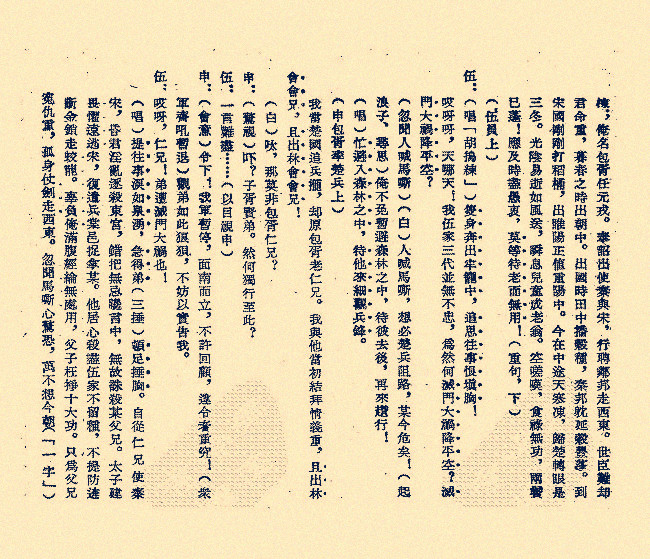 棟，俺名包胥任元戎。奉詔出使秦與宋，行聘鄰邦走西東。世臣難卻
君命重，春暮之時出朝中。出國時田中播穀種，秦邦就延穀要蓬。到
宋國剛剛打稻桶，出睢陽正值重陽中。今在中途天寒凍，歸楚轉眼是
三冬。光陰易逝如風送，瞬息兒童成老翁。空嗟嘆，食祿無功，兩鬢
已蓬！應及時盡愚衷，莫等待老而無用！（重句，下）
（伍員上）
伍：（唱「胡搗練」）隻身奔出牢籠中，追思往事恨填胸！
哎呀呀，天哪天！我伍家三代並無不忠，爲然何滅門大禍降平空？滅
門大禍降平空？
（忽聞人喊馬嘶）（白）人喊馬嘶，想必楚兵阻路，某今危矣！（起
浪子、尋思）俺不免暫避森林之中，待彼去後，再來趲行！
（唱）忙避入森林之中，待他來細觀兵鋒。
（申包胥率楚兵上）
我當楚國追兵擺，却原包胥老仁兄。我與他當初結拜情義重，且出林
會會兄，且出林會會兄！
（白）呔，那莫非包胥仁兄？
申：（驚視）吓？子胥賢弟。然何獨行至此？
伍：一言難盡……（以目視申）
申：（會意）令下！我軍暫停，面南而立，不許回顧，違令者重究！（衆
軍齊吼暫退）觀弟如此狼狽，不妨以實告我。
伍：哎呀，仁兄！弟遭滅門大禍也！
（唱）提往事淚如泉湧，急得弟（三捶）頓足捶胸。自從仁兄使秦
宋，昏君淫亂逐殺東宮，錯把無忌讒言中，無故誅殺某父兄。太子建
畏懼遠逃宋，復遣兵棠邑捉拿某。他居心殺盡伍家不留種，不提防逢
斷金鎖走蛟龍。辜負俺滿腹經綸無處用，父子枉掙十大功。只爲父兄
冤仇重，孤身仗劍走西東。忽聞馬嘶心驚恐，萬不想今朝（「一字」）